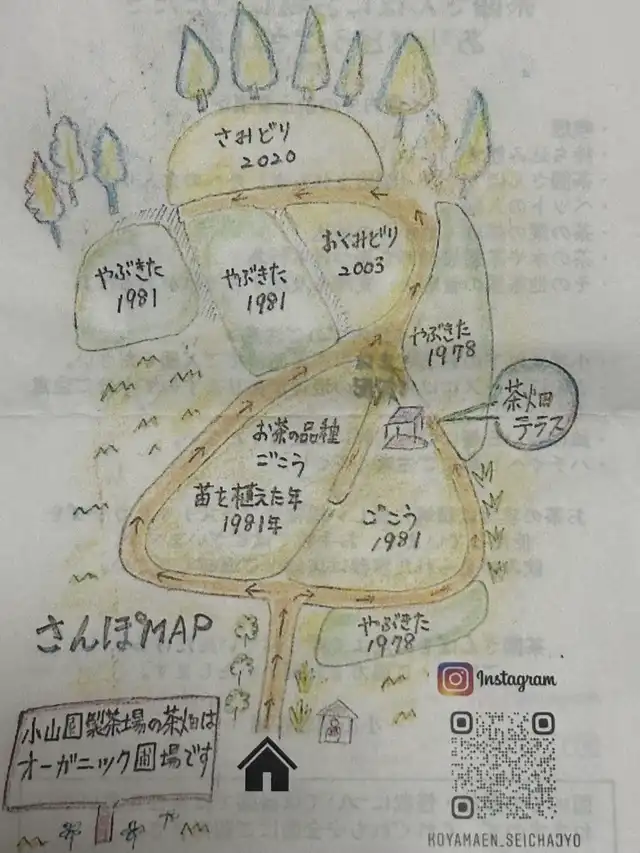 さみどり
2020
やぶきた
1981
やぶきた
1981
おくみどり
2003
やぶきた
1978
茶畑
テラス
お茶の品種
ごこう
苗を植えた年
1981年
ごこう
1981
やぶきた
1978
さんぽMAP
小山園製茶場の茶畑は
オーガニック圃場です
Instagram
KOYAMAEN_SEICHAJYO